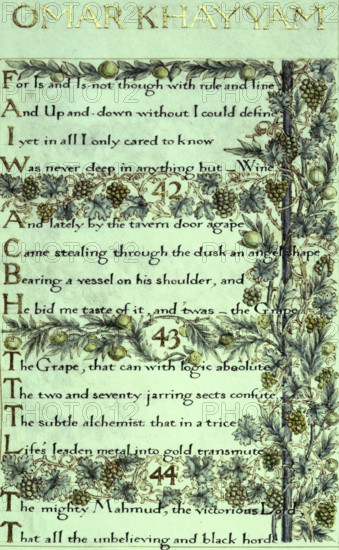 OMAR KHAYYAM
For Is and Is-not though with rule and line
And Up and-down without I could define
I yet in all I only cared to know
Was never deep in anything but – Wine
42
And lately by the tavern door agape
Came stealing through the dusk an angel shape
Bearing a vessel on his shoulder, and
He bid me taste of it, and 'twas – the Grape
43
The Grape, that can with logic absolute
The two and seventy jarring sects confute,
The subtle alchemist that in a trice
Life's leaden metal into gold transmute
44
The mighty Mahmud, the victorious Lord,
That all the unbelieving and black horde